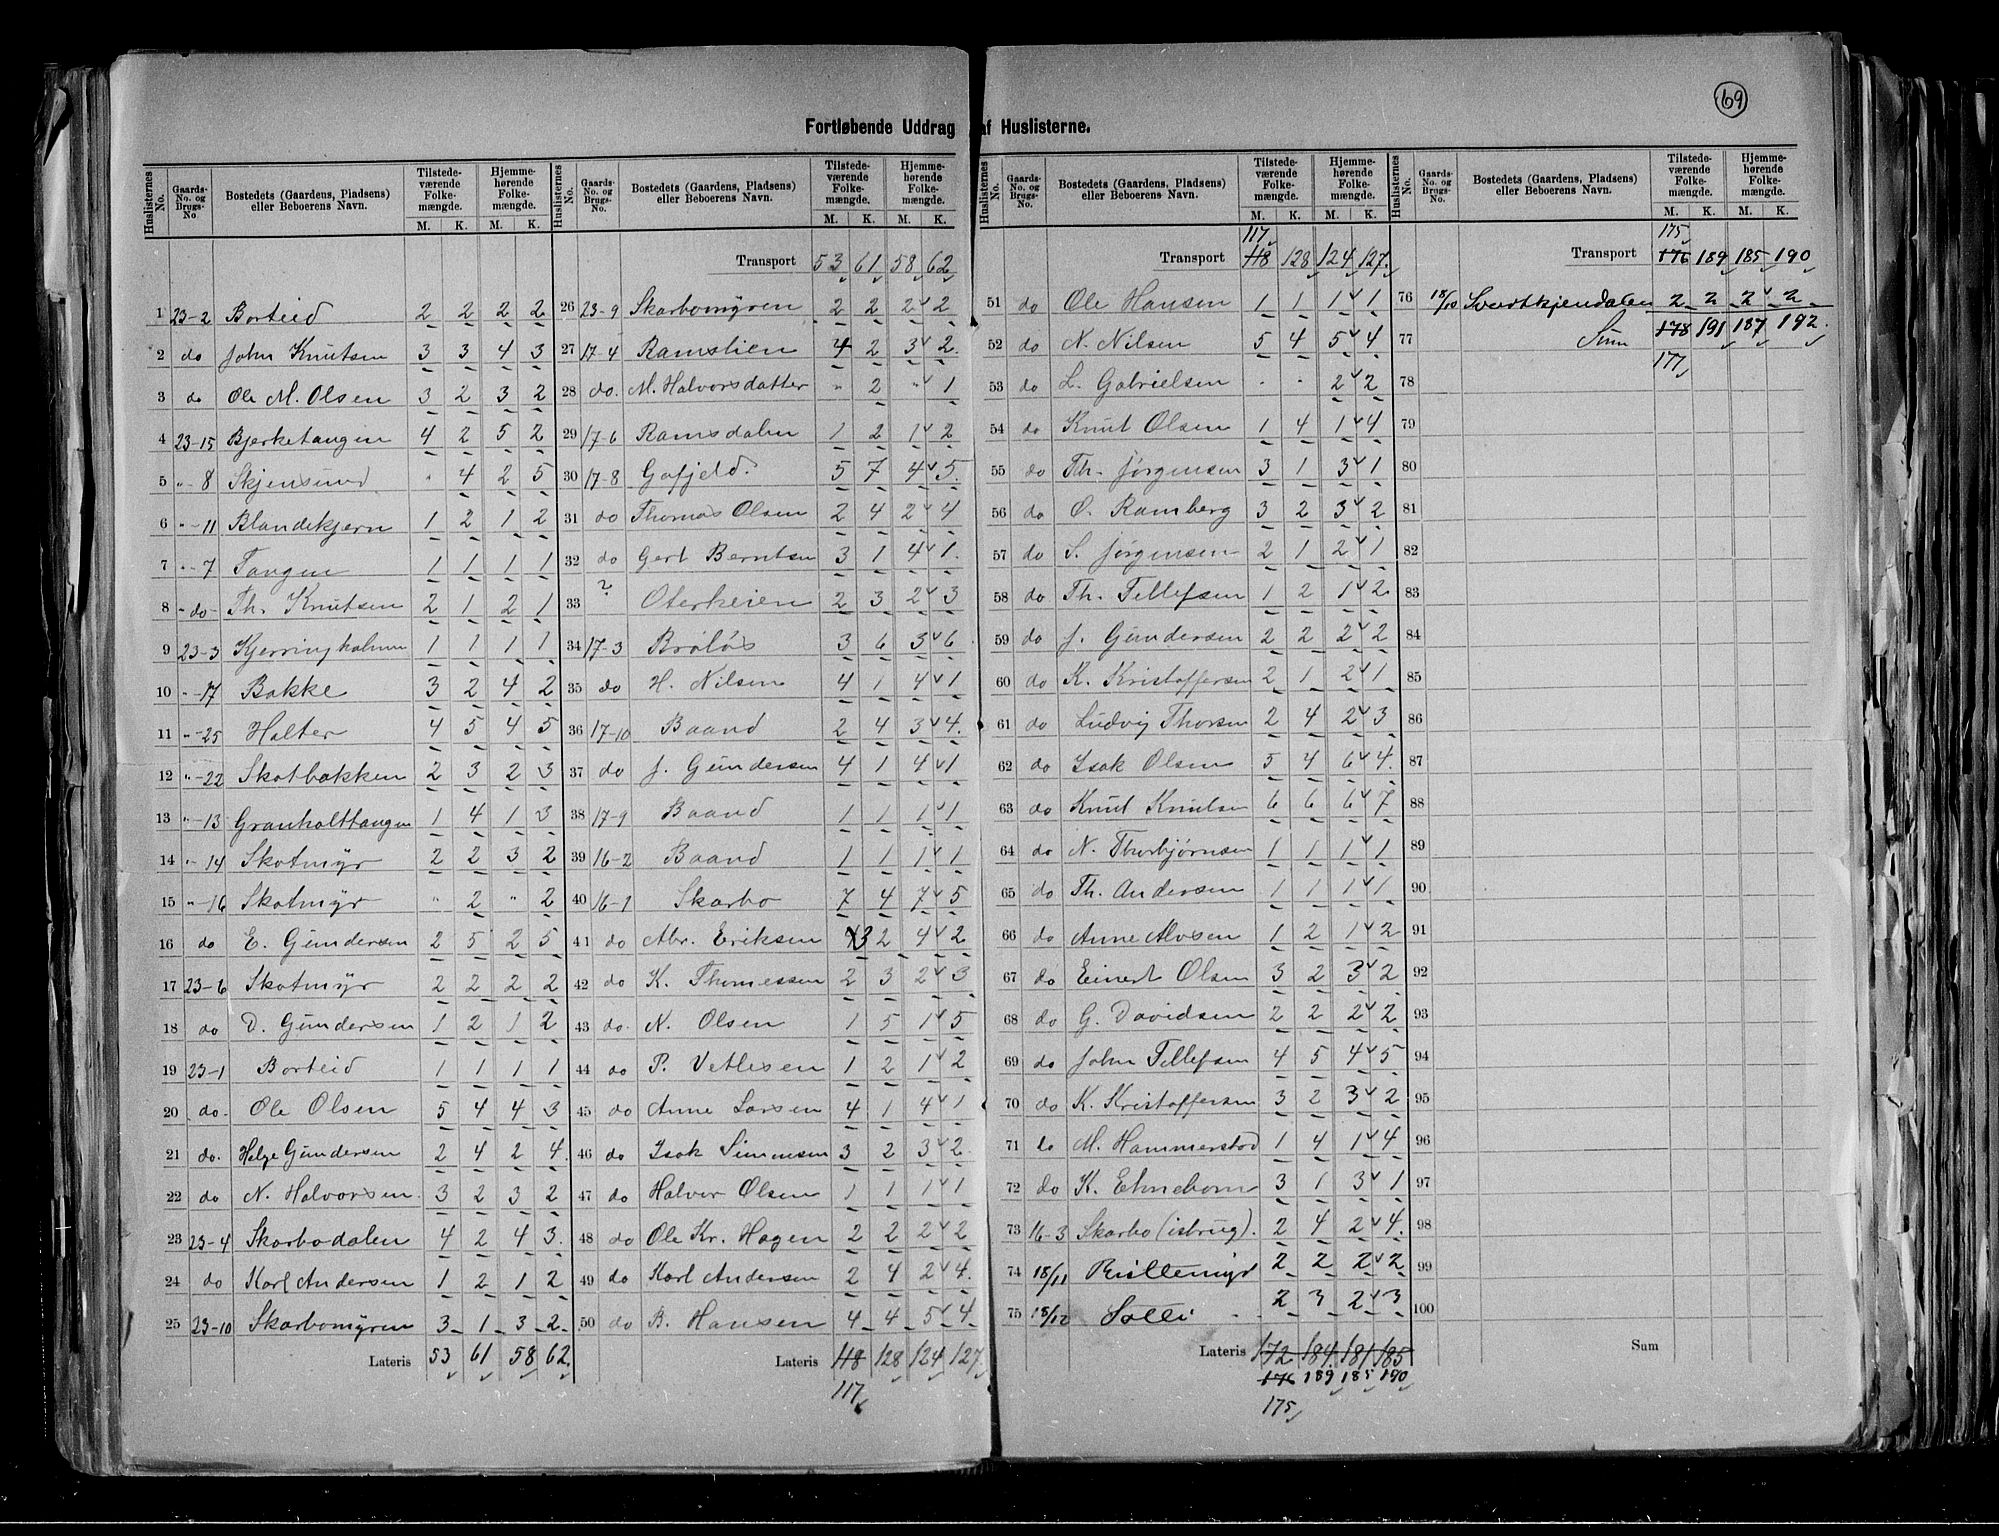 69
Fortløbende Uddrag af Huslisterne.
Huslisternes No. | Gaards-No. og Brugs-No. | Bostedets (Gaardens, Pladsens) eller Beboerens Navn. | Tilstedeværende Folkemængde. M. K. | Hjemmehørende Folkemængde. M. K.
1 23-2 Borteid 2 2 2 2
2 do John Knutsen 3 3 4 3
3 do Ole M. Olsen 3 2 3 2
4 23-15 Bjerketangen 4 2 5 2
5 "-8 Skjensund " 4 2 5
6 "-11 Blandekjern 1 2 1 2
7 "-7 Tangen 1 1 1 1
8 "-do- Th. Knutsen 2 1 2 1
9 23-3 Kjerringholmen 1 1 1 1
10 "-17 Bakke 3 2 4 2
11 "-25 Holter 4 5 4 5
12 "-22 Skotbakken 2 3 2 3
13 "-13 Granholttangen 1 4 1 3
14 "-14 Skotmyr 2 2 3 2
15 "-16 Skotmyr " 2 " 2
16 do E. Gundersen 2 5 2 5
17 23-6 Skotmyr 2 2 2 2
18 do D. Gundersen 1 2 1 2
19 23-1 Borteid 1 1 1 1
20 do. Ole Olsen 5 4 4 3
21 do. Helge Gundersen 2 4 2 4.
22 do N. Halvorsen 3 2 3 2
23 23-4 Skarbodalen 4 2 4 3.
24 do Karl Andersen 1 2 1 2
25 23-10 Skarbomyren 3 1 3 2
Lateris 53 61 58 62
Huslisternes No. | Gaards-No. og Brugs-No. | Bostedets (Gaardens, Pladsens) eller Beboerens Navn. | Tilstedeværende Folkemængde. M. K. | Hjemmehørende Folkemængde. M. K.
Transport 53 61 58 62
26 23-9 Skarbomyren 2 2 2 2
27 17-4 Ramslien 4 2 3 2.
28 do. M. Halvorsdatter " 2 " 1
29 17-6 Ramsdalen 1 2 1 2
30 17-8 Gofjeld. 5 7 4 5.
31 do Thomas Olsen 2 4 2 4
32 do Gert Berntsen 3 1 4 1.
33 ? Oterkeien 2 3 2 3
34 17-3 Bråløs 3 6 3 6
35 do H. Nilsen 4 1 4 1
36 17-10 Baand 2 4 3 4.
37 do J. Gundersen 4 1 4 1
38 17-9 Baand 1 1 1 1
39 16-2 Baand 1 1 1 1
40 16-1 Skarbo 7 4 7 5
41 do Abr. Eriksen 3 2 4 2
42 do K. Thomessen 2 3 2 3
43 do. N. Olsen 1 5 1 5
44 do P. Vetlesen 1 2 1 2
45 do Anne Larsen 4 1 4 1
46 do Isak Simonsen 3 2 3 2.
47 do Halvor Olsen 1 1 1 1
48 do Ole Kr. Hagen 2 2 2 2
49 do Karl Andersen 2 4 2 4.
50 do B. Hansen 4 4 5 4
Lateris 118 128 124 127.
117
Huslisternes No. | Gaards-No. og Brugs-No. | Bostedets (Gaardens, Pladsens) eller Beboerens Navn. | Tilstedeværende Folkemængde. M. K. | Hjemmehørende Folkemængde. M. K.
117
Transport 118 128 124 127.
51 do Ole Hansen 1 1 1 1
52 do N. Nilsen 5 4 5 4
53 do L. Gabrielsen " " 2 2
54 do Knut Olsen 1 4 1 4
55 do Th. Jørgensen 3 1 3 1
56 do O. Ramberg 3 2 3 2
57 do S. Jørgensen 2 1 2 1
58 do Th. Tellefsen 1 2 1 2
59 do J. Gundersen 2 2 2 2
60 do K. Kristoffersen 2 1 2 1
61 do Ludvig Thorsen 2 4 2 3
62 do Isak Olsen 5 4 6 4.
63 do Knut Knutsen 6 6 6 7
64 do N. Thorbjørnsen 1 1 1 1
65 do Th. Andersen 1 1 1 1
66 do Anne Alvsen 1 2 1 2
67 do Einert Olsen 3 2 3 2
68 do G. Davidsen 2 2 2 2
69 do John Tellefsen 4 5 4 5
70 do K. Kristoffersen 3 2 3 2
71 do M. Hammerstad 1 4 1 4
72 do K. Ehneborn 3 1 3 1
73 16-3 Skarbo (isbrug). 2 4 2 4.
74 18/11 2 2 2 2
75 18/12 Solli 2 3 2 3
Lateris 172 184 181 185
176 189 185 190
175
Huslisternes No. | Gaards-No. og Brugs-No. | Bostedets (Gaardens, Pladsens) eller Beboerens Navn. | Tilstedeværende Folkemængde. M. K. | Hjemmehørende Folkemængde. M. K.
175
Transport 176 189 185 190
76 18/10 Svartkjendalen 2 2 2 2
77 Sum 178 191 187 192.
177
78
79
80
81
82
83
84
85
86
87
88
89
90
91
92
93
94
95
96
97
98
99
100
Sum